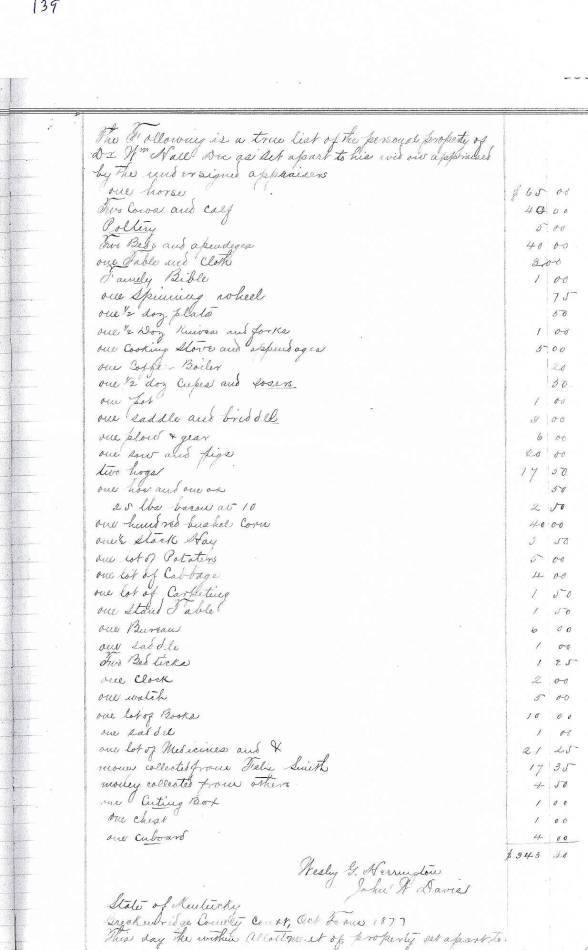 139
The Following is a true list of the personal property of
Dr Wm Nall Dec as set apart to his widow appraised
by the undersigned appraisers
one horse $65 00
Two Cows and calf 40 00
Poltery 5 00
Two Beds and apendiges 40 00
one Table and Cloth 3 00
Famely Bible 1 00
one Spinning wheel 75
one ½ doz plats 50
one ½ Doz Knives and forks 1 00
one Cooking Stove and apendages 5 00
one Coffe Boiler 20
one ½ doz Cupes and sosers 50
one Pot 1 00
one saddle and briddel 8 00
one plow & gear 6 00
one sow and pigs 20 00
two hogs 17 50
one hoe and one ax 50
25 lbs bacon at 10 2 50
one hundred bushel Corn 40 00
one Stack Hay 3 50
one lot of Potatoes 5 00
one lot of Cabbage 4 00
one lot of Carpeting 1 50
one Stand Table 1 50
one Bureau 6 00
one saddle 1 00
Two Bedticks 1 25
one Clock 2 00
one watch 5 00
one lot of Books 10 00
one saddel 1 00
one lot of Medicines and & 21 25
money collected from Smith 17 35
money collected from others 4 50
one Cuting Box 1 00
one chest 1 00
one Cuboard 4 00
$343
Wesly G. Herrington
John W Davis
State of Kentucky
Breckenridge County Court, Oct 1877
This day the within allottment of property set apart to